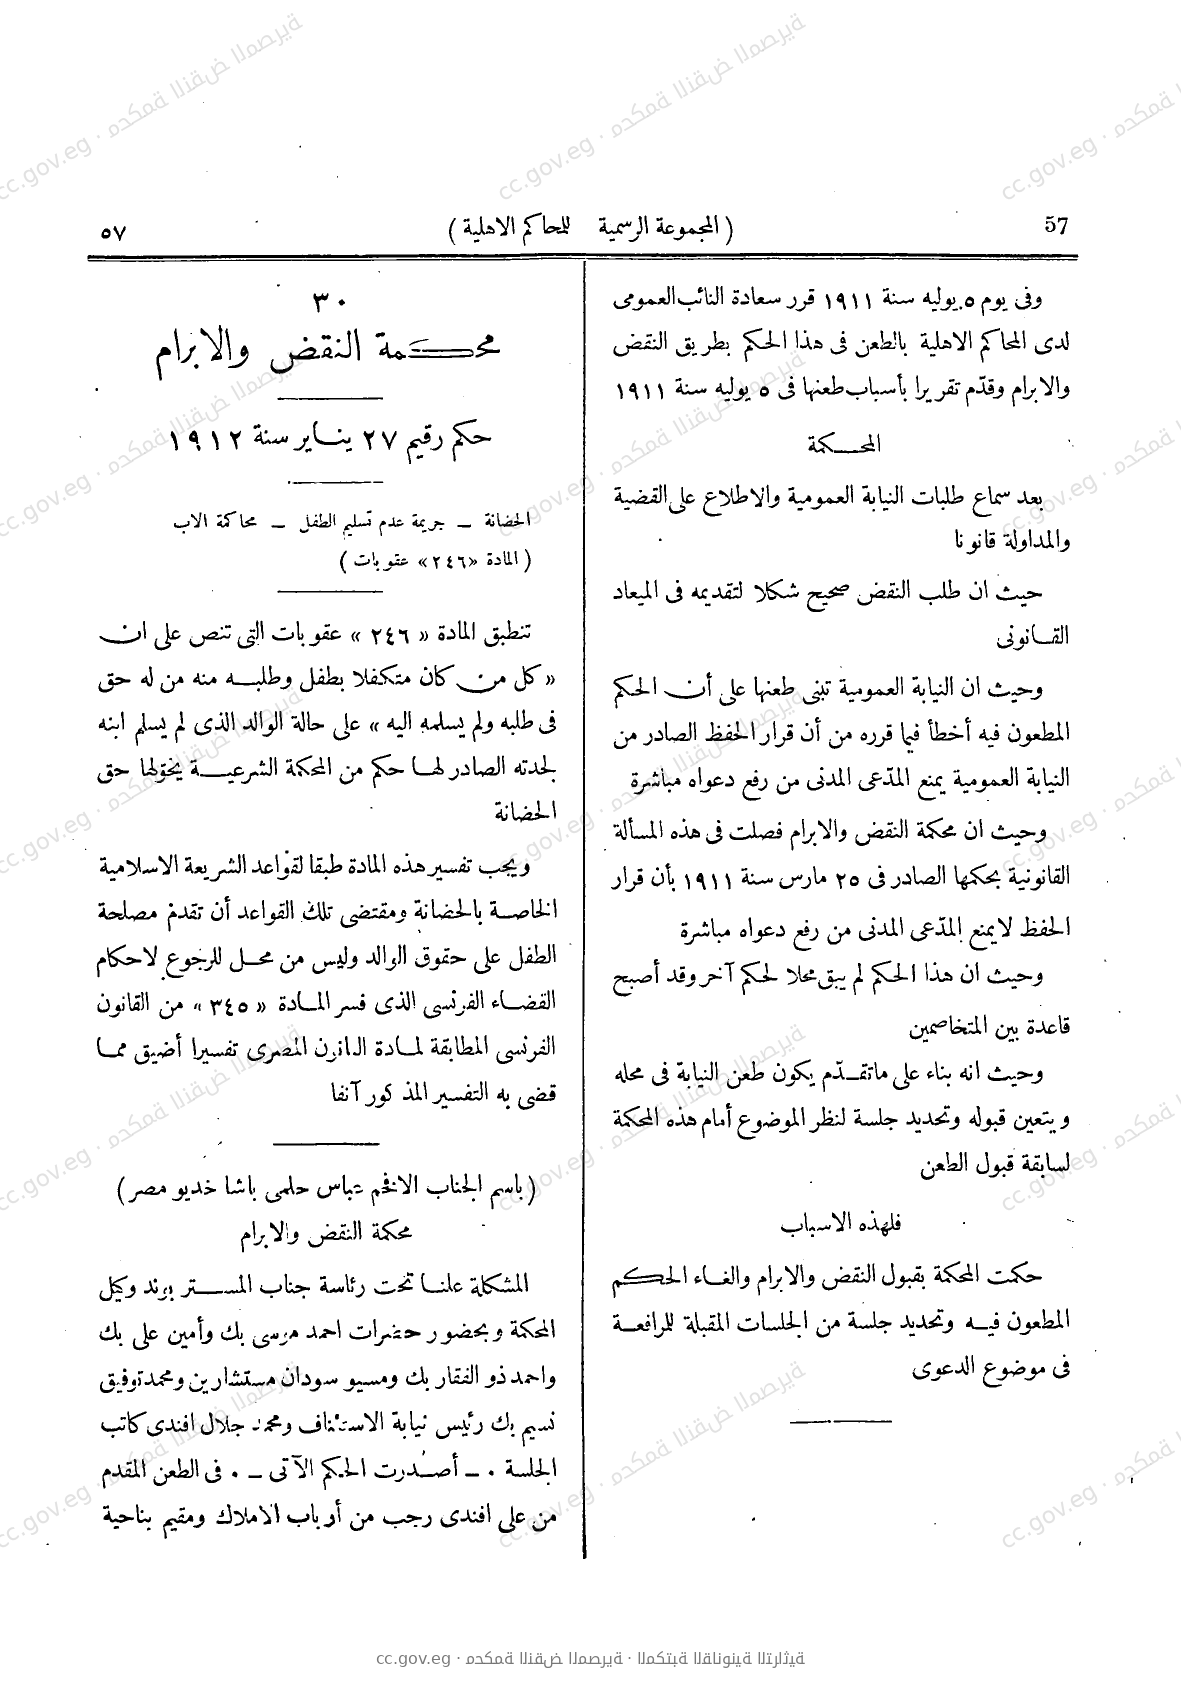 57
( المجموعة الرسمية للمحاكم الاهلية )
٥٧
وفى يوم ٥ يوليه سنة ١٩١١ قرر سعادة النائب العمومى
لدى المحاكم الاهلية بالطعن فى هذا الحكم بطريق النقض
والابرام وقدّم تقريرا بأسباب طعنها فى ٥ يوليه سنة ١٩١١
المحكمة
بعد سماع طلبات النيابة العمومية والاطلاع على القضية
والمداولة قانونا
حيث ان طلب النقض صحيح شكلا لتقديمه فى الميعاد
القانونى
وحيث ان النيابة العمومية تبنى طعنها على أن الحكم
المطعون فيه أخطأ فيما قرره من أن قرار الحفظ الصادر من
النيابة العمومية يمنع المدّعى المدنى من رفع دعواه مباشرة
وحيث ان محكمة النقض والابرام فصلت فى هذه المسألة
القانونية بحكمها الصادر فى ٢٥ مارس سنة ١٩١١ بأن قرار
الحفظ لا يمنع المدّعى المدنى من رفع دعواه مباشرة
وحيث ان هذا الحكم لم يبق محلا لحكم آخر وقد أصبح
قاعدة بين المتخاصمين
وحيث انه بناء على ماتقدّم يكون طعن النيابة فى محله
ويتعين قبوله وتحديد جلسة لنظر الموضوع أمام هذه المحكمة
لسابقة قبول الطعن
فلهذه الاسباب
حكمت المحكمة بقبول النقض والابرام والغاء الحكم
المطعون فيه وتحديد جلسة من الجلسات المقبلة للمرافعة
فى موضوع الدعوى
٣٠
محكمة النقض والابرام
حكم رقيم ٢٧ يناير سنة ١٩١٢
الحضانة – جريمة عدم تسليم الطفل – محاكمة الاب
( المادة «٢٤٦» عقوبات )
تنطبق المادة « ٢٤٦ » عقوبات التى تنص على ان
« كل من كان متكفلا بطفل وطلبه منه من له حق
فى طلبه ولم يسلمه اليه » على حالة الوالد الذى لم يسلم ابنه
لجدته الصادر لها حكم من المحكمة الشرعية يخوّلها حق
الحضانة
ويجب تفسير هذه المادة طبقا لقواعد الشريعة الاسلامية
الخاصة بالحضانة ومقتضى تلك القواعد أن تقدم مصلحة
الطفل على حقوق الوالد وليس من محل للرجوع لاحكام
القضاء الفرنسى الذى فسر المادة « ٣٤٥ » من القانون
الفرنسى المطابقة لمادة القانون المصرى تفسيرا أضيق مما
قضى به التفسير المذكور آنفا
( باسم الجناب الافخم عباس حلمى باشا خديو مصر )
محكمة النقض والابرام
المشكلة علنا تحت رئاسة جناب المستر بوند وكيل
المحكمة وبحضور حضرات احمد موسى بك وأمين على بك
واحمد ذو الفقار بك ومسيو سودان مستشارين ومحمد توفيق
نسيم بك رئيس نيابة الاستئناف ومحمد جلال افندى كاتب
الجلسة ٠ – أصدرت الحكم الآتى – ٠ فى الطعن المقدم
من على افندى رجب من أرباب الاملاك ومقيم بناحية
cc.gov.eg · محكمة النقض المصرية · المكتبة القانونية التراثية